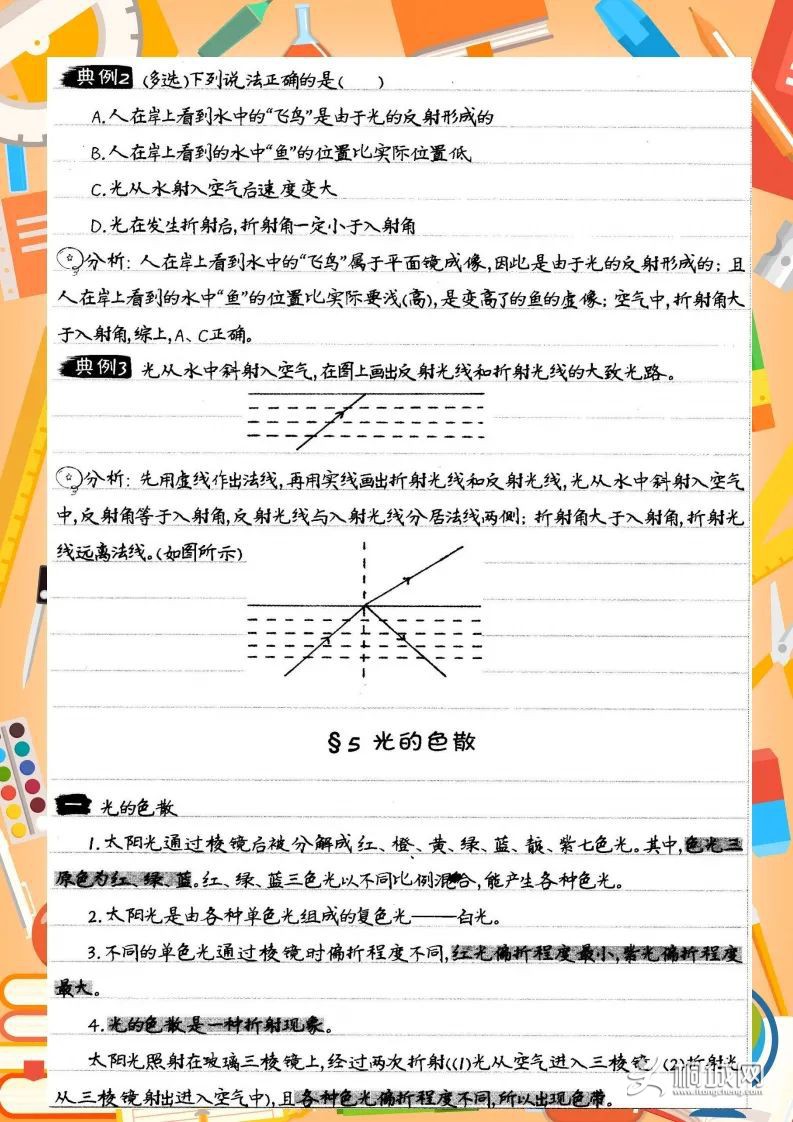 典例2 (多选)下列说法正确的是( )
A.人在岸上看到水中的“飞鸟”是由于光的反射形成的
B.人在岸上看到的水中“鱼”的位置比实际位置低
C.光从水射入空气后速度变大
D.光在发生折射后,折射角一定小于入射角
分析:人在岸上看到水中的“飞鸟”属于平面镜成像,因此是由于光的反射形成的;且
人在岸上看到的水中“鱼”的位置比实际要浅(高),是变高了的鱼的虚像;空气中,折射角大
于入射角,综上,A、C正确。
典例3 光从水中斜射入空气,在图上画出反射光线和折射光线的大致光路。
分析:先用虚线作出法线,再用实线画出折射光线和反射光线,光从水中斜射入空气
中,反射角等于入射角,反射光线与入射光线分居法线两侧;折射角大于入射角,折射光
线远离法线。(如图所示)
§5 光的色散
一 光的色散
1.太阳光通过棱镜后被分解成红、橙、黄、绿、蓝、靛、紫七色光。其中,色光三
原色为红、绿、蓝。红、绿、蓝三色光以不同比例混合,能产生各种色光。
2.太阳光是由各种单色光组成的复色光——白光。
3.不同的单色光通过棱镜时偏折程度不同,红光偏折程度最小,紫光偏折程度
最大。
4.光的色散是一种折射现象。
太阳光照射在玻璃三棱镜上,经过两次折射((1)光从空气进入三棱镜 (2)折射光
从三棱镜射出进入空气中),且各种色光偏折程度不同,所以出现色带。
桐城网
www.itongcheng.com